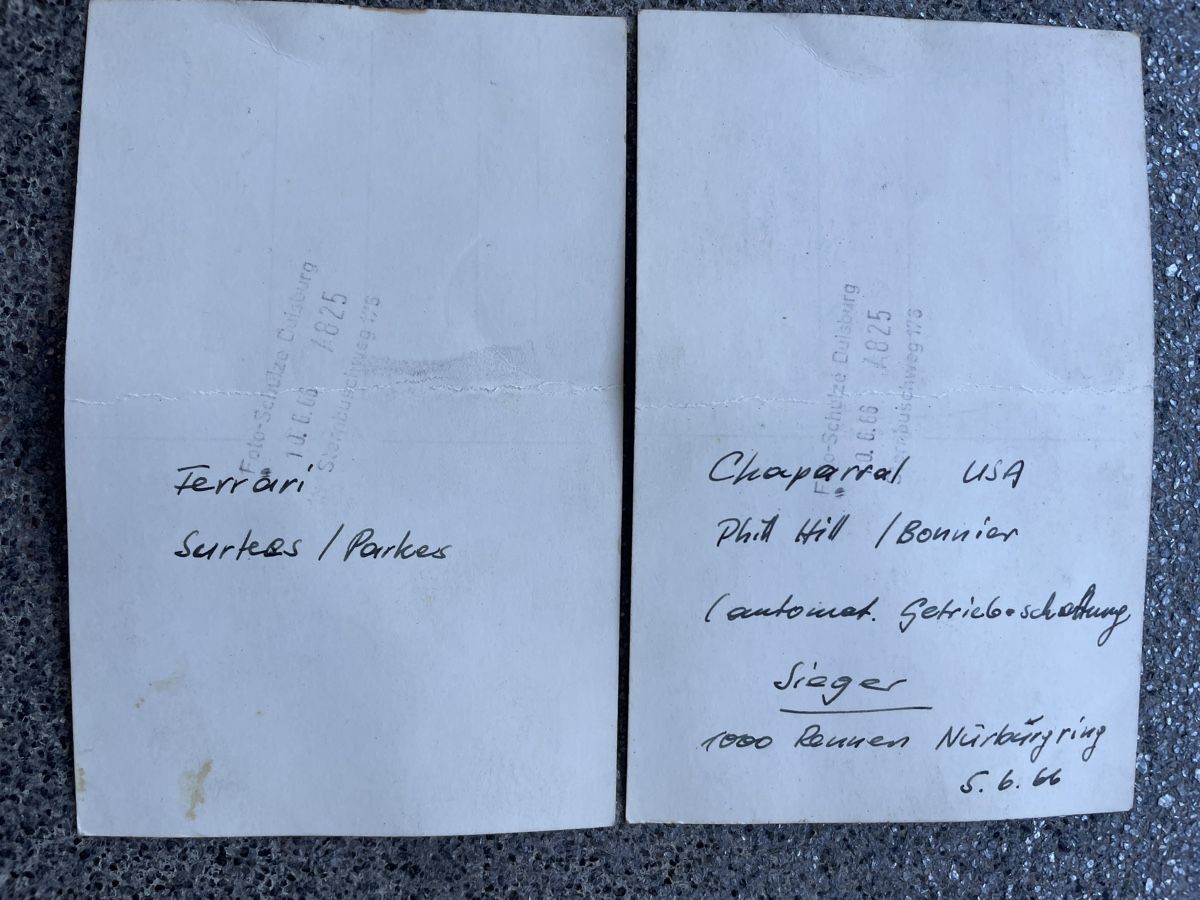 Foto-Schulze Duisburg
10.6.66 A825
Sternbuschweg 176
Ferrari
Surtees / Parkes
Foto-Schulze Duisburg
10.6.66 A825
Sternbuschweg 176
Chaparral USA
Phill Hill / Bonnier
(automat. Getriebeschaltung
Sieger
1000 Rennen Nürbürgring
5.6.66